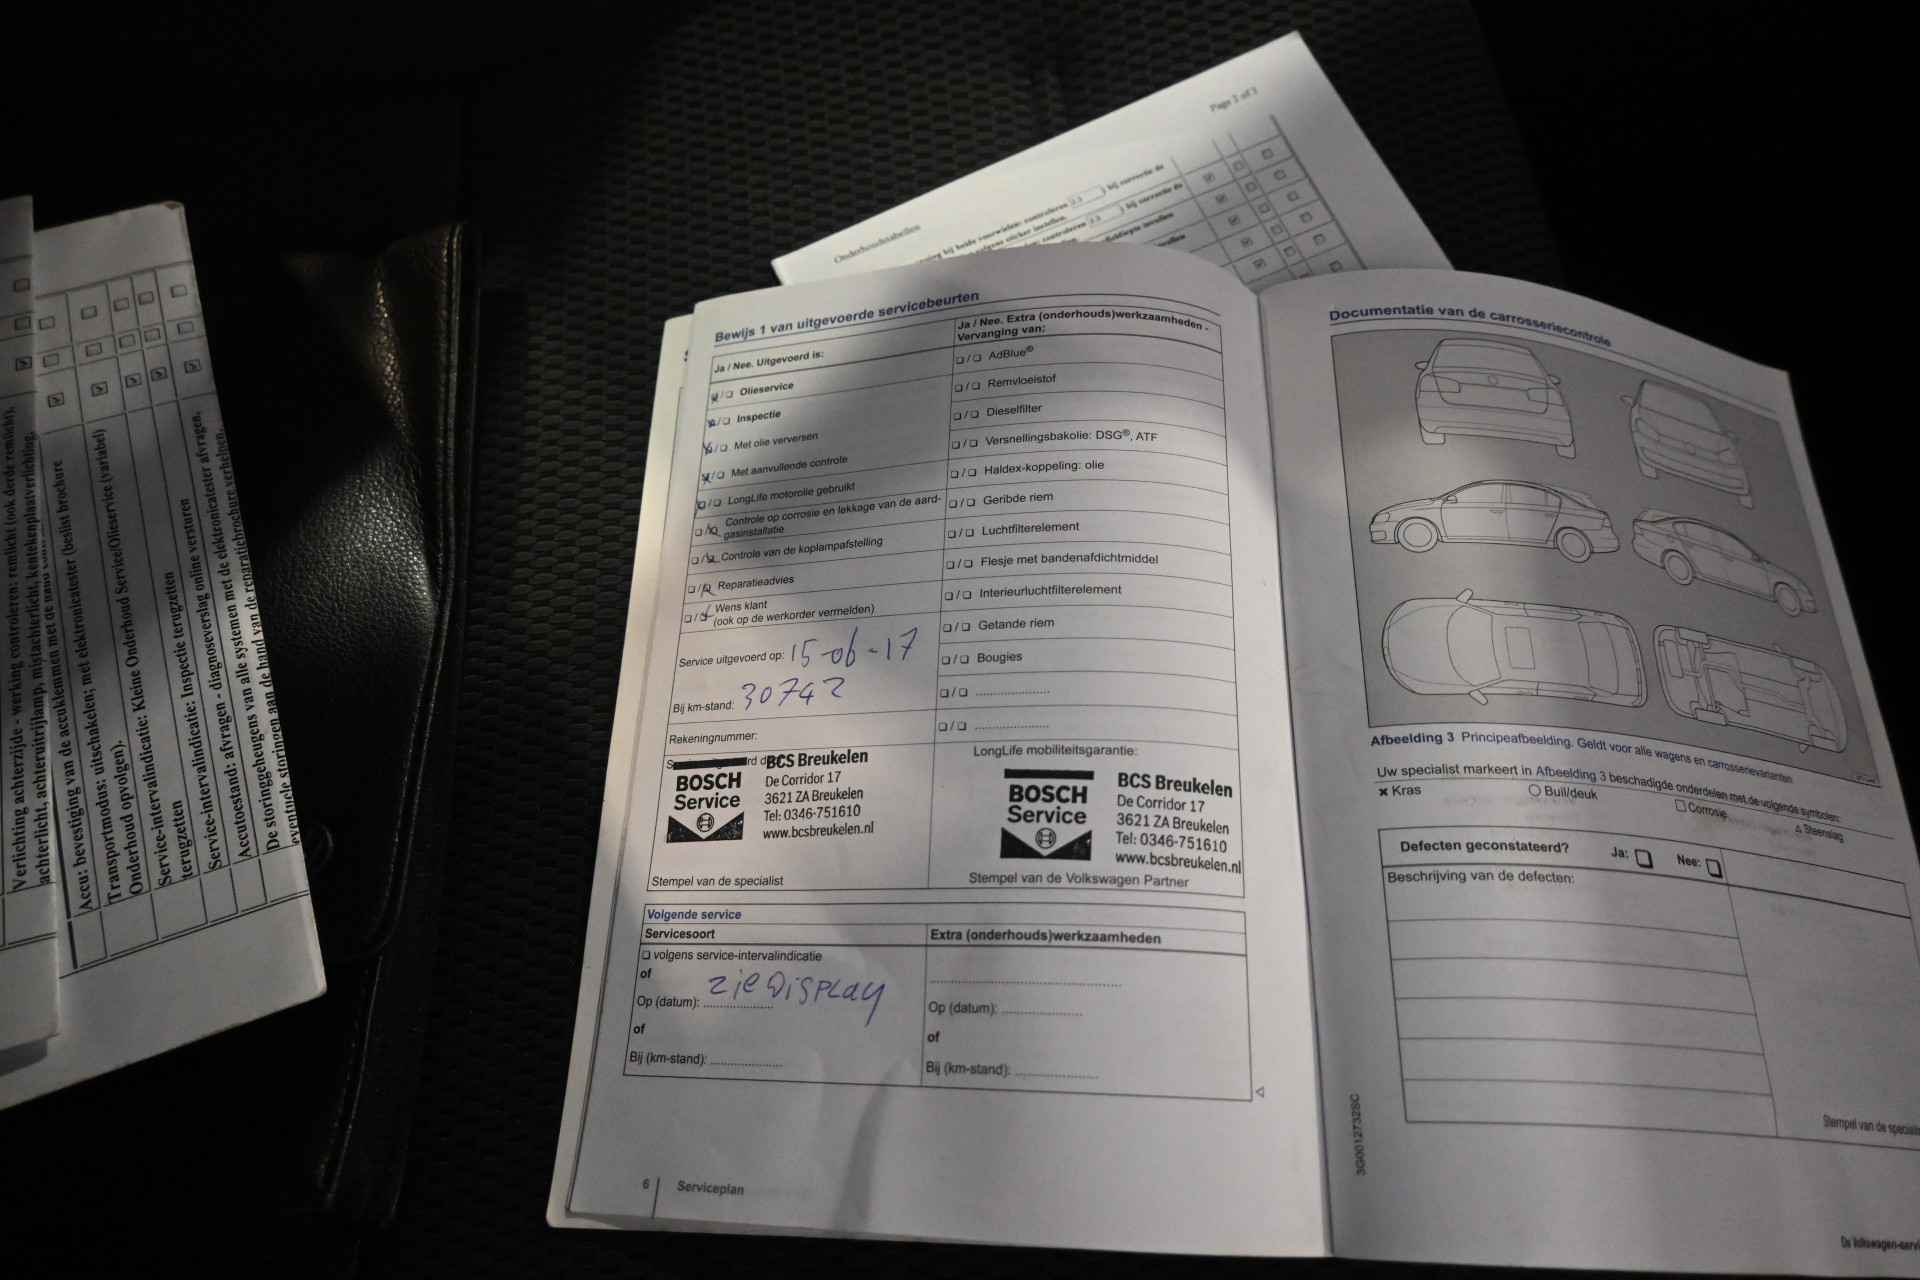 Page 2 of 3
Onderhoudstabellen
bij beide voorwielen: controleren bij correctie de
volgens sticker instellen.
controleren bij correctie de
Verlichting achterzijde - werking controleren: remlicht (ook derde remlicht),
achterlicht, achteruitrijlamp, mistachterlicht, kentekenplaatverlichting,
Accu: bevestiging van de accuklemmen met de hand
Transportmodus: uitschakelen; met elektronicatester (beslist brochure
Onderhoud opvolgen).
Service-intervalindicatie: Kleine Onderhoud Service/Olieservice (variabel)
terugzetten
Service-intervalindicatie: Inspectie terugzetten
Accutoestand: afvragen - diagnoseverslag online versturen
De storinggeheugens van alle systemen met de elektronicatester afvragen,
eventuele storingen aan de hand van de reparatiebrochure verhelpen.
Bewijs 1 van uitgevoerde servicebeurten
Ja / Nee. Uitgevoerd is:
❑ / ❑ Olieservice
❑ / ❑ Inspectie
❑ / ❑ Met olie verversen
❑ / ❑ Met aanvullende controle
❑ / ❑ LongLife motorolie gebruikt
❑ / ❑ Controle op corrosie en lekkage van de aard-
gasinstallatie
❑ / ❑ Controle van de koplampafstelling
❑ / ❑ Reparatieadvies
❑ / ❑ Wens klant
(ook op de werkorder vermelden)
Service uitgevoerd op: 15-06-17
Bij km-stand: 30742
Rekeningnummer:
BCS Breukelen
BOSCH
Service
De Corridor 17
3621 ZA Breukelen
Tel: 0346-751610
www.bcsbreukelen.nl
Stempel van de specialist
Ja / Nee. Extra (onderhouds)werkzaamheden -
Vervanging van:
❑ / ❑ AdBlue®
❑ / ❑ Remvloeistof
❑ / ❑ Dieselfilter
❑ / ❑ Versnellingsbakolie: DSG®, ATF
❑ / ❑ Haldex-koppeling: olie
❑ / ❑ Geribde riem
❑ / ❑ Luchtfilterelement
❑ / ❑ Flesje met bandenafdichtmiddel
❑ / ❑ Interieurluchtfilterelement
❑ / ❑ Getande riem
❑ / ❑ Bougies
❑ / ❑ ....................
❑ / ❑ ....................
LongLife mobiliteitsgarantie:
BOSCH
Service
BCS Breukelen
De Corridor 17
3621 ZA Breukelen
Tel: 0346-751610
www.bcsbreukelen.nl
Stempel van de Volkswagen Partner
Volgende service
Servicesoort
❑ volgens service-intervalindicatie
of
Op (datum): zie Display
of
Bij (km-stand): ....................
Extra (onderhouds)werkzaamheden
..................................................
Op (datum): ....................
of
Bij (km-stand): ....................
6 Serviceplan
Documentatie van de carrosseriecontrole
Afbeelding 3 Principeafbeelding. Geldt voor alle wagens en carrosserievarianten
Uw specialist markeert in Afbeelding 3 beschadigde onderdelen met de volgende symbolen:
× Kras ○ Buil/deuk □ Corrosie △ Steenslag
Defecten geconstateerd? Ja: ❑ Nee: ❑
Beschrijving van de defecten:
Stempel van de specialist
3G0012732SC
De Volkswagen-servi